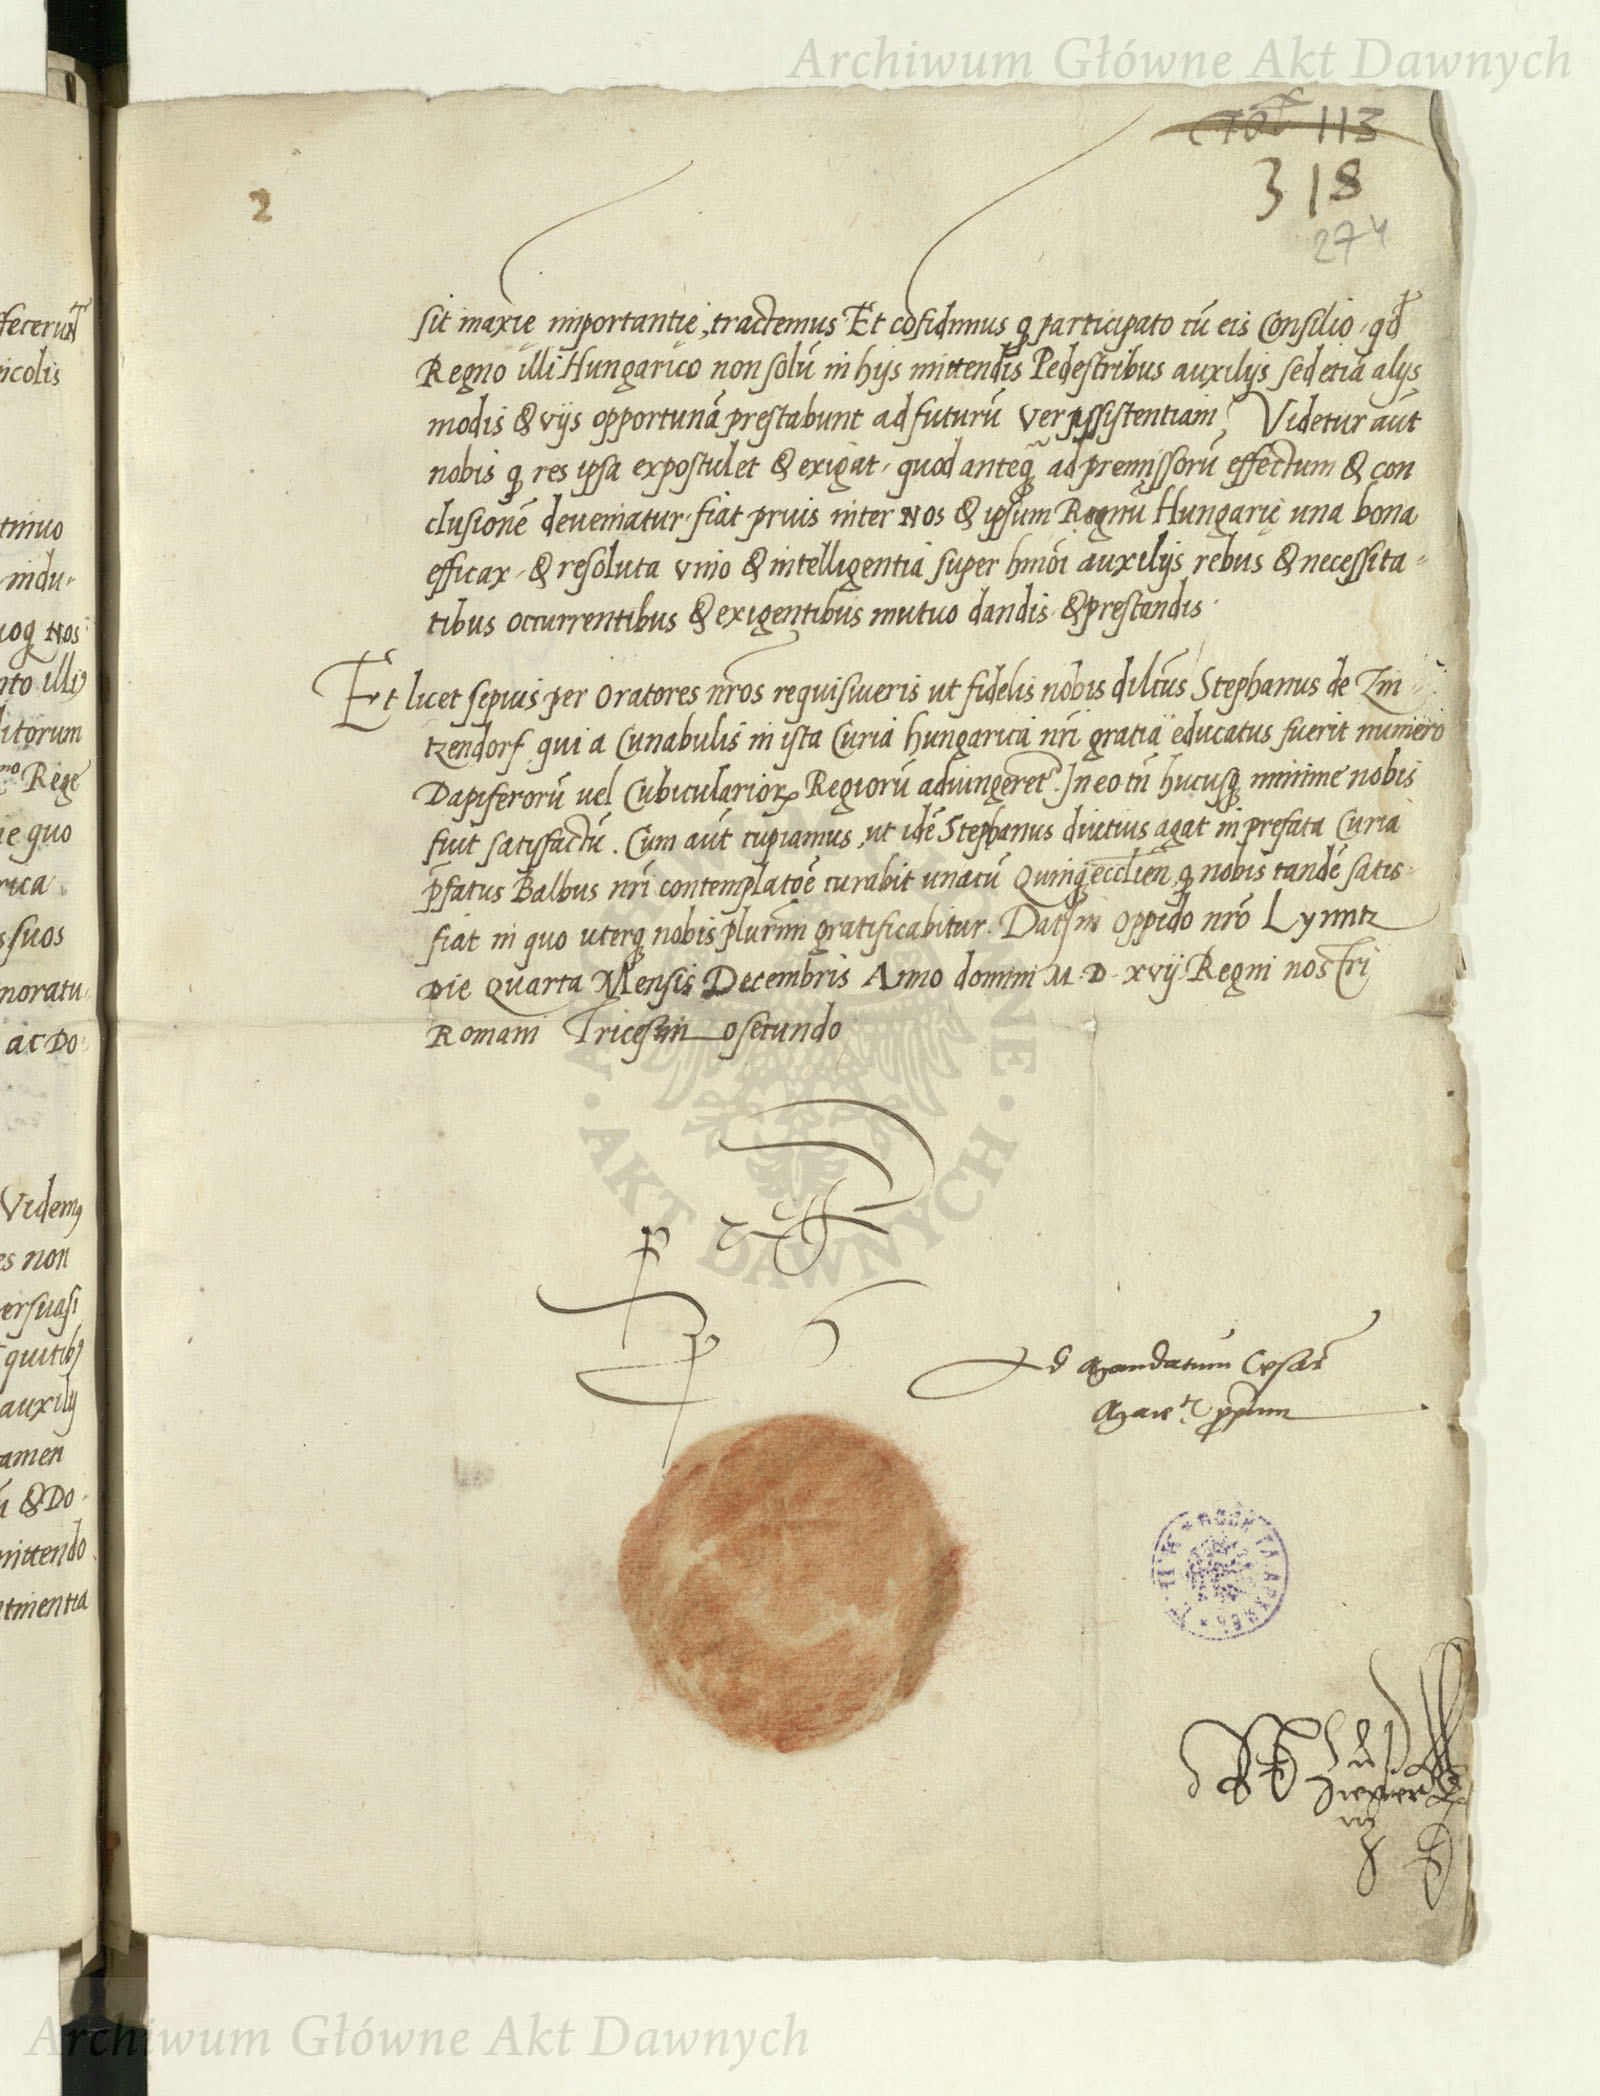 Archiwum Główne Akt Dawnych
113
318
274
2
sit maxie importantie, tractemus Et cōfidimus q participato cū eis Consilio, qđ
Regno illi Hungarico non solū in hijs mittendis Pedestribus auxilijs sed etiā alijs
modis & vijs opportunā prestabunt ad futurū Ver assistentiam, Videtur aūt
nobis q res ipsa expostulet & exigat, quod anteq̃ ad premissorū effectum & con
clusionē deveniatur fiat prius inter Nos & ipsum Regnū Hungarie una bona
efficax, & resoluta unio & intelligentia super hmōi auxilijs rebus & necessita-
tibus occurrentibus & exigentibus mutuo dandis & prestandis
Et licet sepius per Oratores nr̄os requisiveris ut fidelis nobis dilctūs Stephanus de Zin
tzendorf qui a Cunabulis in ista Curia hungarica nr̄i gratia educatus fuerit numero
Dapiferorū vel Cubiculariorꝝ Regiorū adiungeret. In eo tn̄ hucusq minime nobis
fuit satisfactū. Cum aūt cupiamus, ut idē Stephanus diutius agat in prefata Curia
p̄fatus Balbus nr̄i contemplatōe curabit unacū Quinqeccl̄ien, q nobis tandē satis-
fiat in quo uterq nobis plurim̄ gratificabitur. Dat̄ in Oppido nr̄o Lynntz
Die Quarta Mensis Decembris Anno domini M.D.xvij Regni nostri
Romani Tricesimosecundo
p
Ad Mandatum Cesar̄
Maiet̄ ppum
fecerunt
icolis
tinuo
indu-
uoq Nos
nto illi
litorum
mo Rege
ie quo
rica
suos
noratu
ac Do
Videmꝫ
es non
ersuasi
quitibꝫ
auxilij
tamen
& Do-
mittendo
tinentia
ARCHIWUM GŁÓWNE AKT DAWNYCH
Archiwum Główne Akt Dawnych